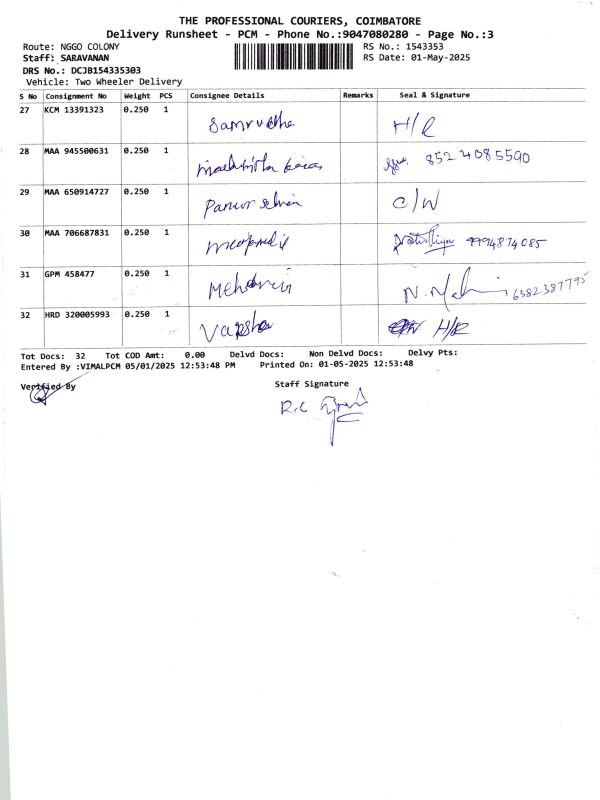 THE PROFESSIONAL COURIERS, COIMBATORE
Delivery Runsheet - PCM - Phone No.:9047080280 - Page No.:3
Route: NGGO COLONY RS No.: 1543353
Staff: SARAVANAN RS Date: 01-May-2025
DRS No.: DCJB154335303
Vehicle: Two Wheeler Delivery
S No Consignment No Weight PCS Consignee Details Remarks Seal & Signature
27 KCM 13391323 0.250 1 Samrudha H/R
28 MAA 945500631 0.250 1 8524085590
29 MAA 650914727 0.250 1 C/W
30 MAA 706687831 0.250 1 9994874085
31 GPM 458477 0.250 1 6382387795
32 HRD 320005993 0.250 1 Varsha H/R
Tot Docs: 32 Tot COD Amt: 0.00 Delvd Docs: Non Delvd Docs: Delvy Pts:
Entered By :VIMALPCM 05/01/2025 12:53:48 PM Printed On: 01-05-2025 12:53:48
Verified By Staff Signature
R.C